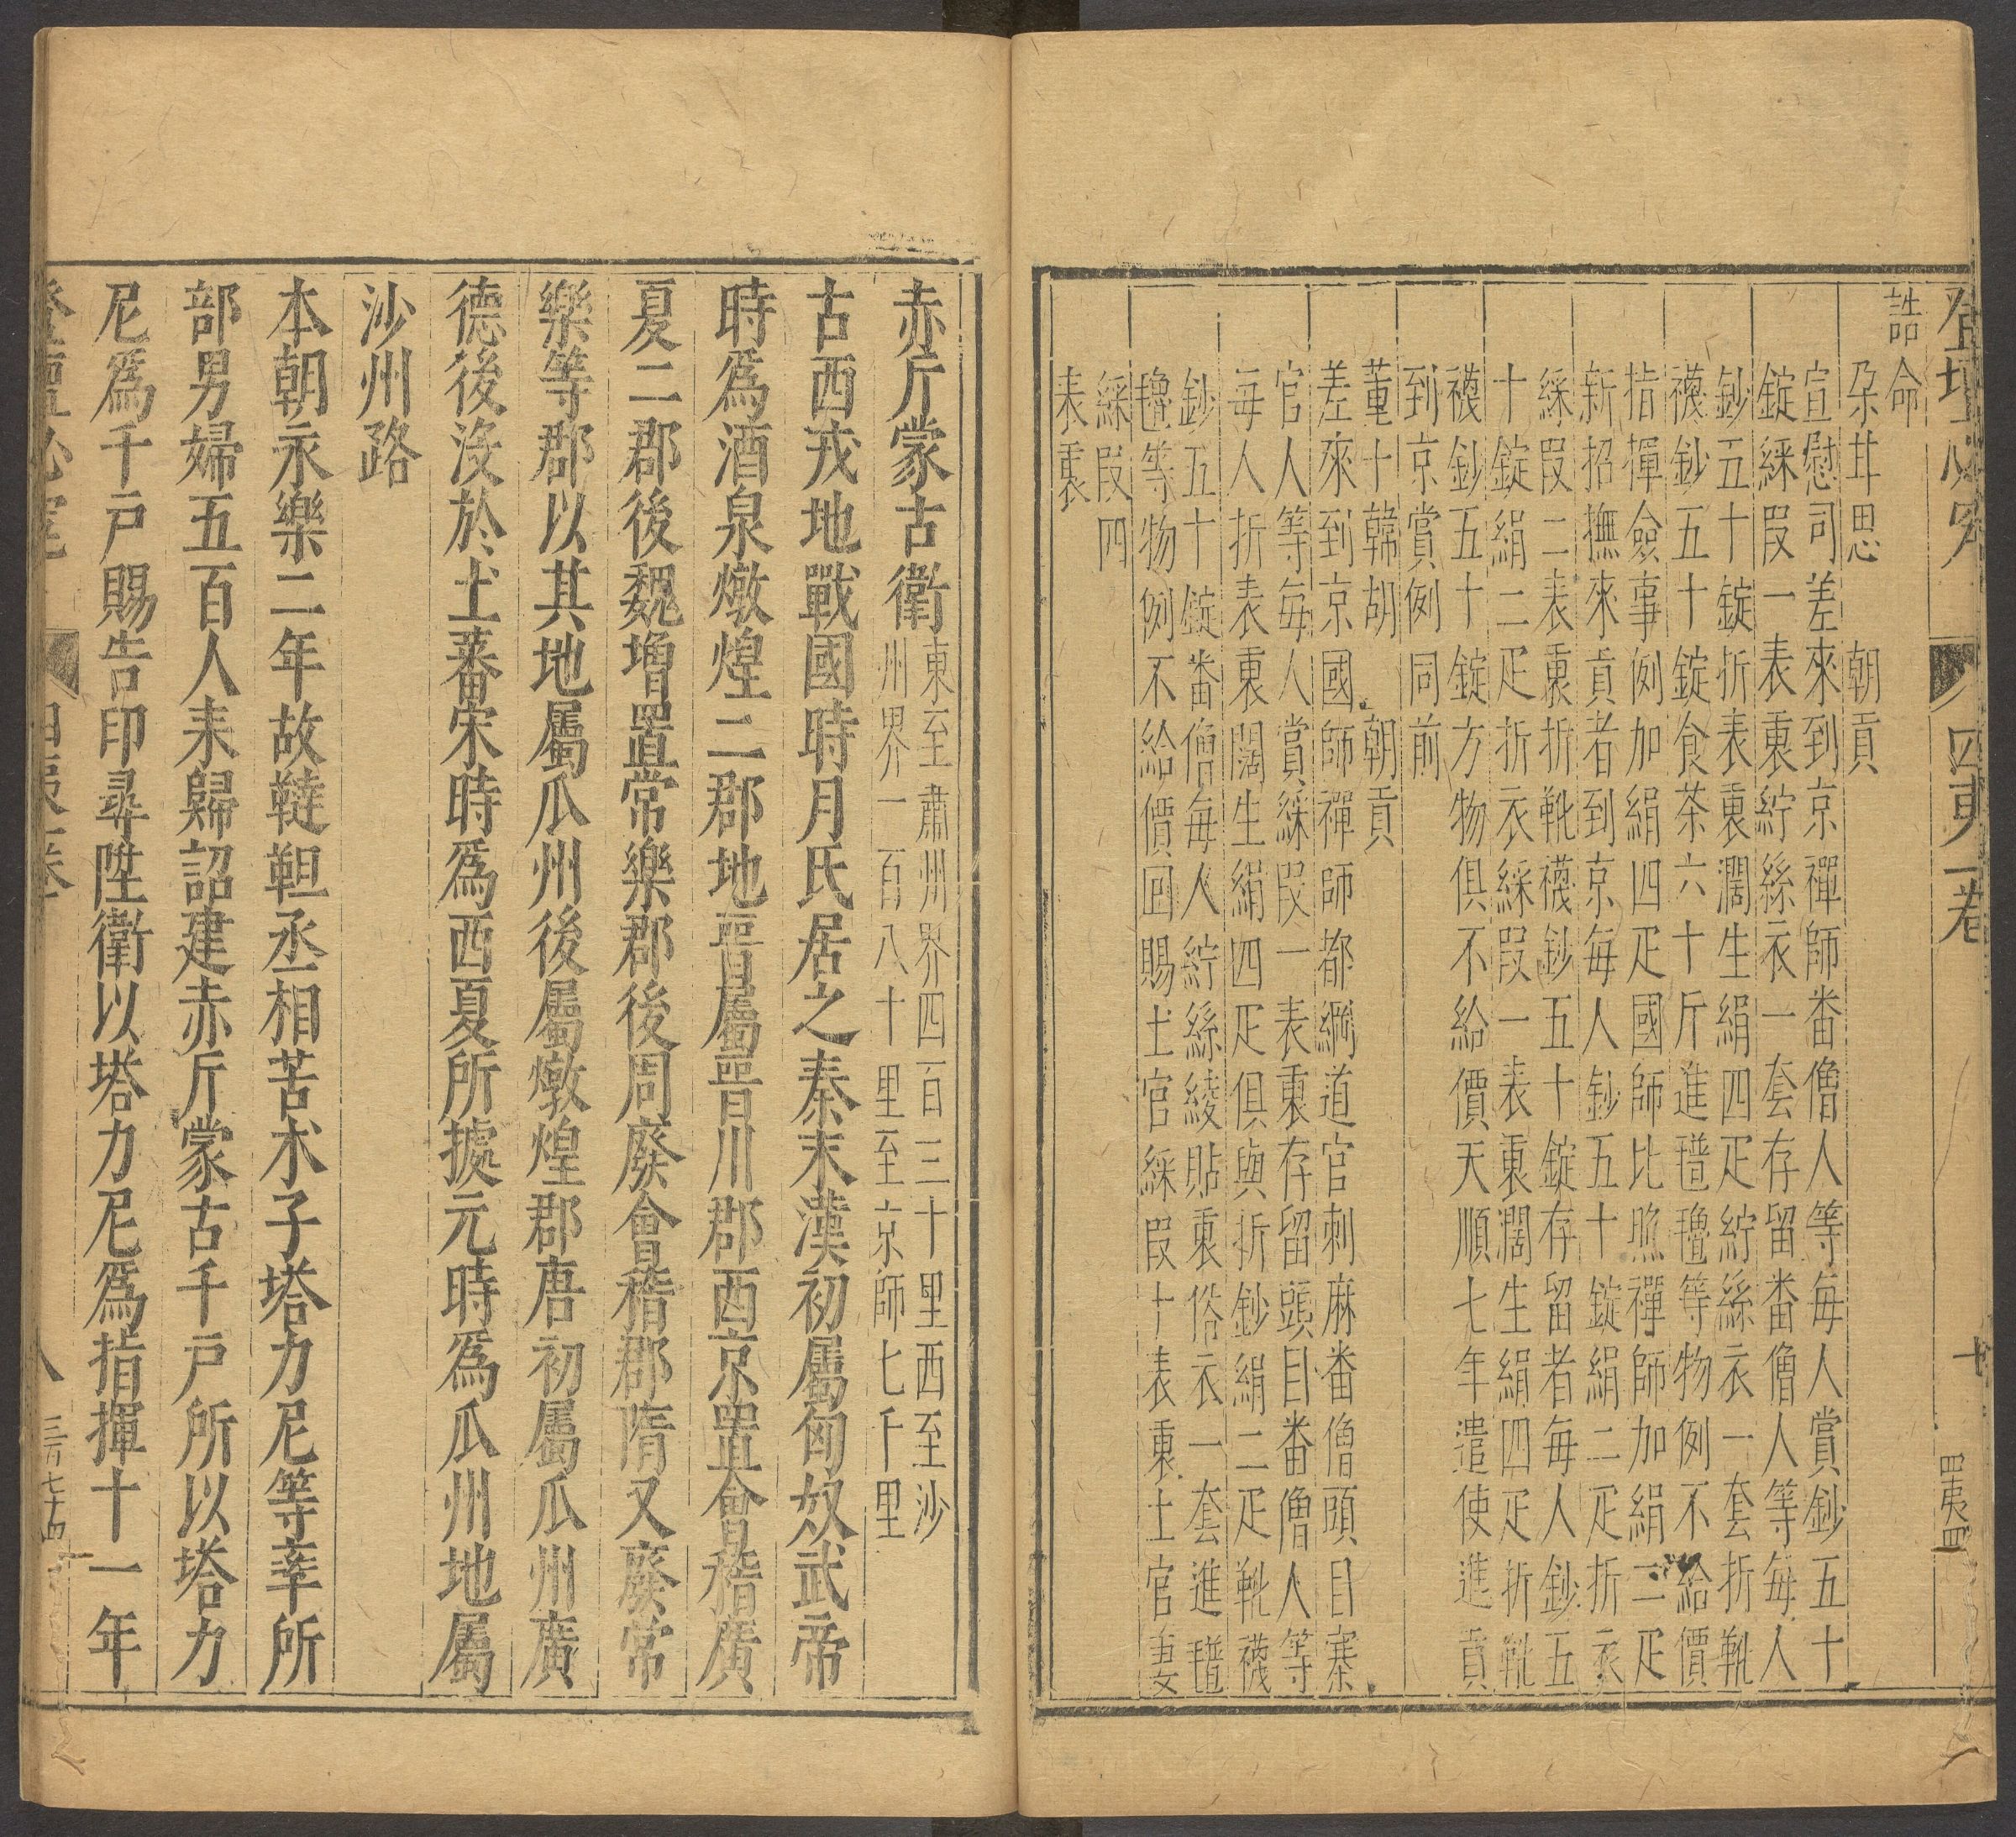 登壇必究
四夷一卷
十
四夷四
誥命
朶甘思 朝貢
宣慰司差來到京禪師畨僧人等每人賞鈔五十
錠綵叚一表裏紵絲衣一套存留畨僧人等每人
鈔五十錠折表裏濶生絹四疋紵絲衣一套折靴
襪鈔五十錠食茶六十斤進氆氇等物例不給價
指揮僉事例加絹四疋國師比照禪師加絹二疋
新招撫來貢者到京每人鈔五十錠絹二疋折衣
綵叚二表裏折靴襪鈔五十錠存留者每人鈔五
十錠絹二疋折衣綵叚一表裏濶生絹四疋折靴
襪鈔五十錠方物俱不給價天順七年遣使進貢
到京賞例同前
董卜韓胡 朝貢
差來到京國師禪師都綱道官剌麻畨僧頭目寨
官人等每人賞綵叚一表裏存留頭目畨僧人等
每人折表裏闊生絹四疋俱與折鈔絹二疋靴襪
鈔五十錠畨僧每人紵絲綾貼裏俗衣一套進氆
氇等物例不給價回賜土官綵叚十表裏土官妻
綵叚四
表裏
赤斤蒙古衛東至肅州界四百三十里西至沙
州界一百八十里至京師七千里
古西戎地戰國時月氏居之秦末漢初屬匈奴武帝
時爲酒泉燉煌二郡地晋屬晋川郡西京置會稽廣
夏二郡後魏增置常樂郡後周廢會稽郡隋又廢常
樂等郡以其地屬瓜州後屬燉煌郡唐初屬瓜州廣
德後没於土蕃宋時爲西夏所據元時爲瓜州地屬
沙州路
本朝永樂二年故韃靼丞相苦术子塔力尼等率所
部男婦五百人来歸詔建赤斤蒙古千戶所以塔力
尼爲千戶賜告印尋陞衛以塔力尼爲指揮十一年
登壇必究
四夷一卷
八
三百七十四